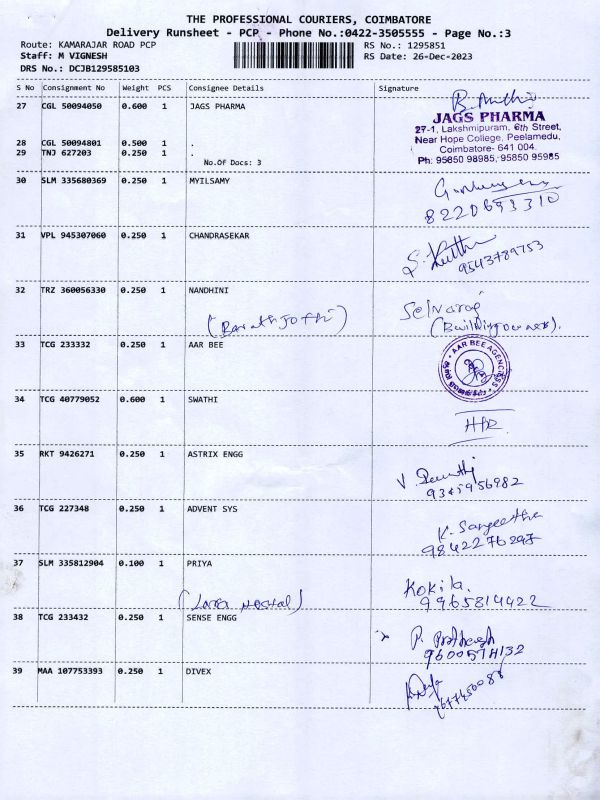 THE PROFESSIONAL COURIERS, COIMBATORE
Delivery Runsheet - PCP - Phone No.:0422-3505555 - Page No.:3
Route: KAMARAJAR ROAD PCP RS No.: 1295851
Staff: M VIGNESH RS Date: 26-Dec-2023
DRS No.: DCJB129585103
S No Consignment No Weight PCS Consignee Details Signature
27 CGL 50094050 0.600 1 JAGS PHARMA
JAGS PHARMA
27-1, Lakshmipuram, 6th Street,
Near Hope College, Peelamedu,
Coimbatore- 641 004.
Ph: 95850 98985, 95850 95985
28 CGL 50094801 0.500 1 .
29 TNJ 627203 0.250 1 .
No.Of Docs: 3
30 SLM 335680369 0.250 1 MYILSAMY
8220693310
31 VPL 945307060 0.250 1 CHANDRASEKAR
9543789753
32 TRZ 360056330 0.250 1 NANDHINI
Selvaraj
(Barathi Jothi) (Building owner).
33 TCG 233332 0.250 1 AAR BEE
AAR BEE AGENCIES
34 TCG 40779052 0.600 1 SWATHI
35 RKT 9426271 0.250 1 ASTRIX ENGG
9345956982
36 TCG 227348 0.250 1 ADVENT SYS
K. Sangeetha
9842276297
37 SLM 335812904 0.100 1 PRIYA
Kokila.
9965814422
38 TCG 233432 0.250 1 SENSE ENGG
P. Prathap
39 MAA 107753393 0.250 1 DIVEX